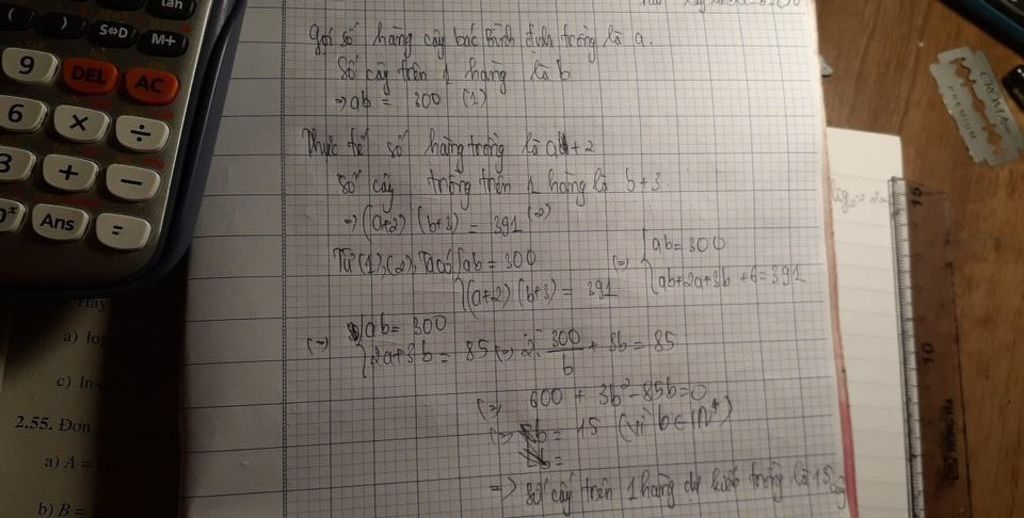 ( ) S⇔D M+
tan
9 DEL AC
6 × ÷
3 + −
Ans =
a) lo
c) In
2.55. Đơn
a) A =
b) B =
gọi số hàng cây bác Bình định trồng là a.
Số cây trên 1 hàng là b
⇒ ab = 300 (1)
Thực tế số hàng trồng là a+2
Số cây trồng trên 1 hàng là b+3.
⇒ (a+2) (b+3) = 391 (2)
Từ (1), (2), Ta có { ab = 300 (⇒) { ab = 300
{ (a+2) (b+3) = 391 { ab+2a+3b+6=391
(⇒) { ab = 300
{ 2a+3b = 85 (⇒) 2. 300/b + 3b = 85
(⇒) 600 + 3b² - 85b = 0
(⇒) b = 15 (vì b ∈ IN*)
⇒ số cây trên 1 hàng dự kiến trồng là 15 cây
15
10